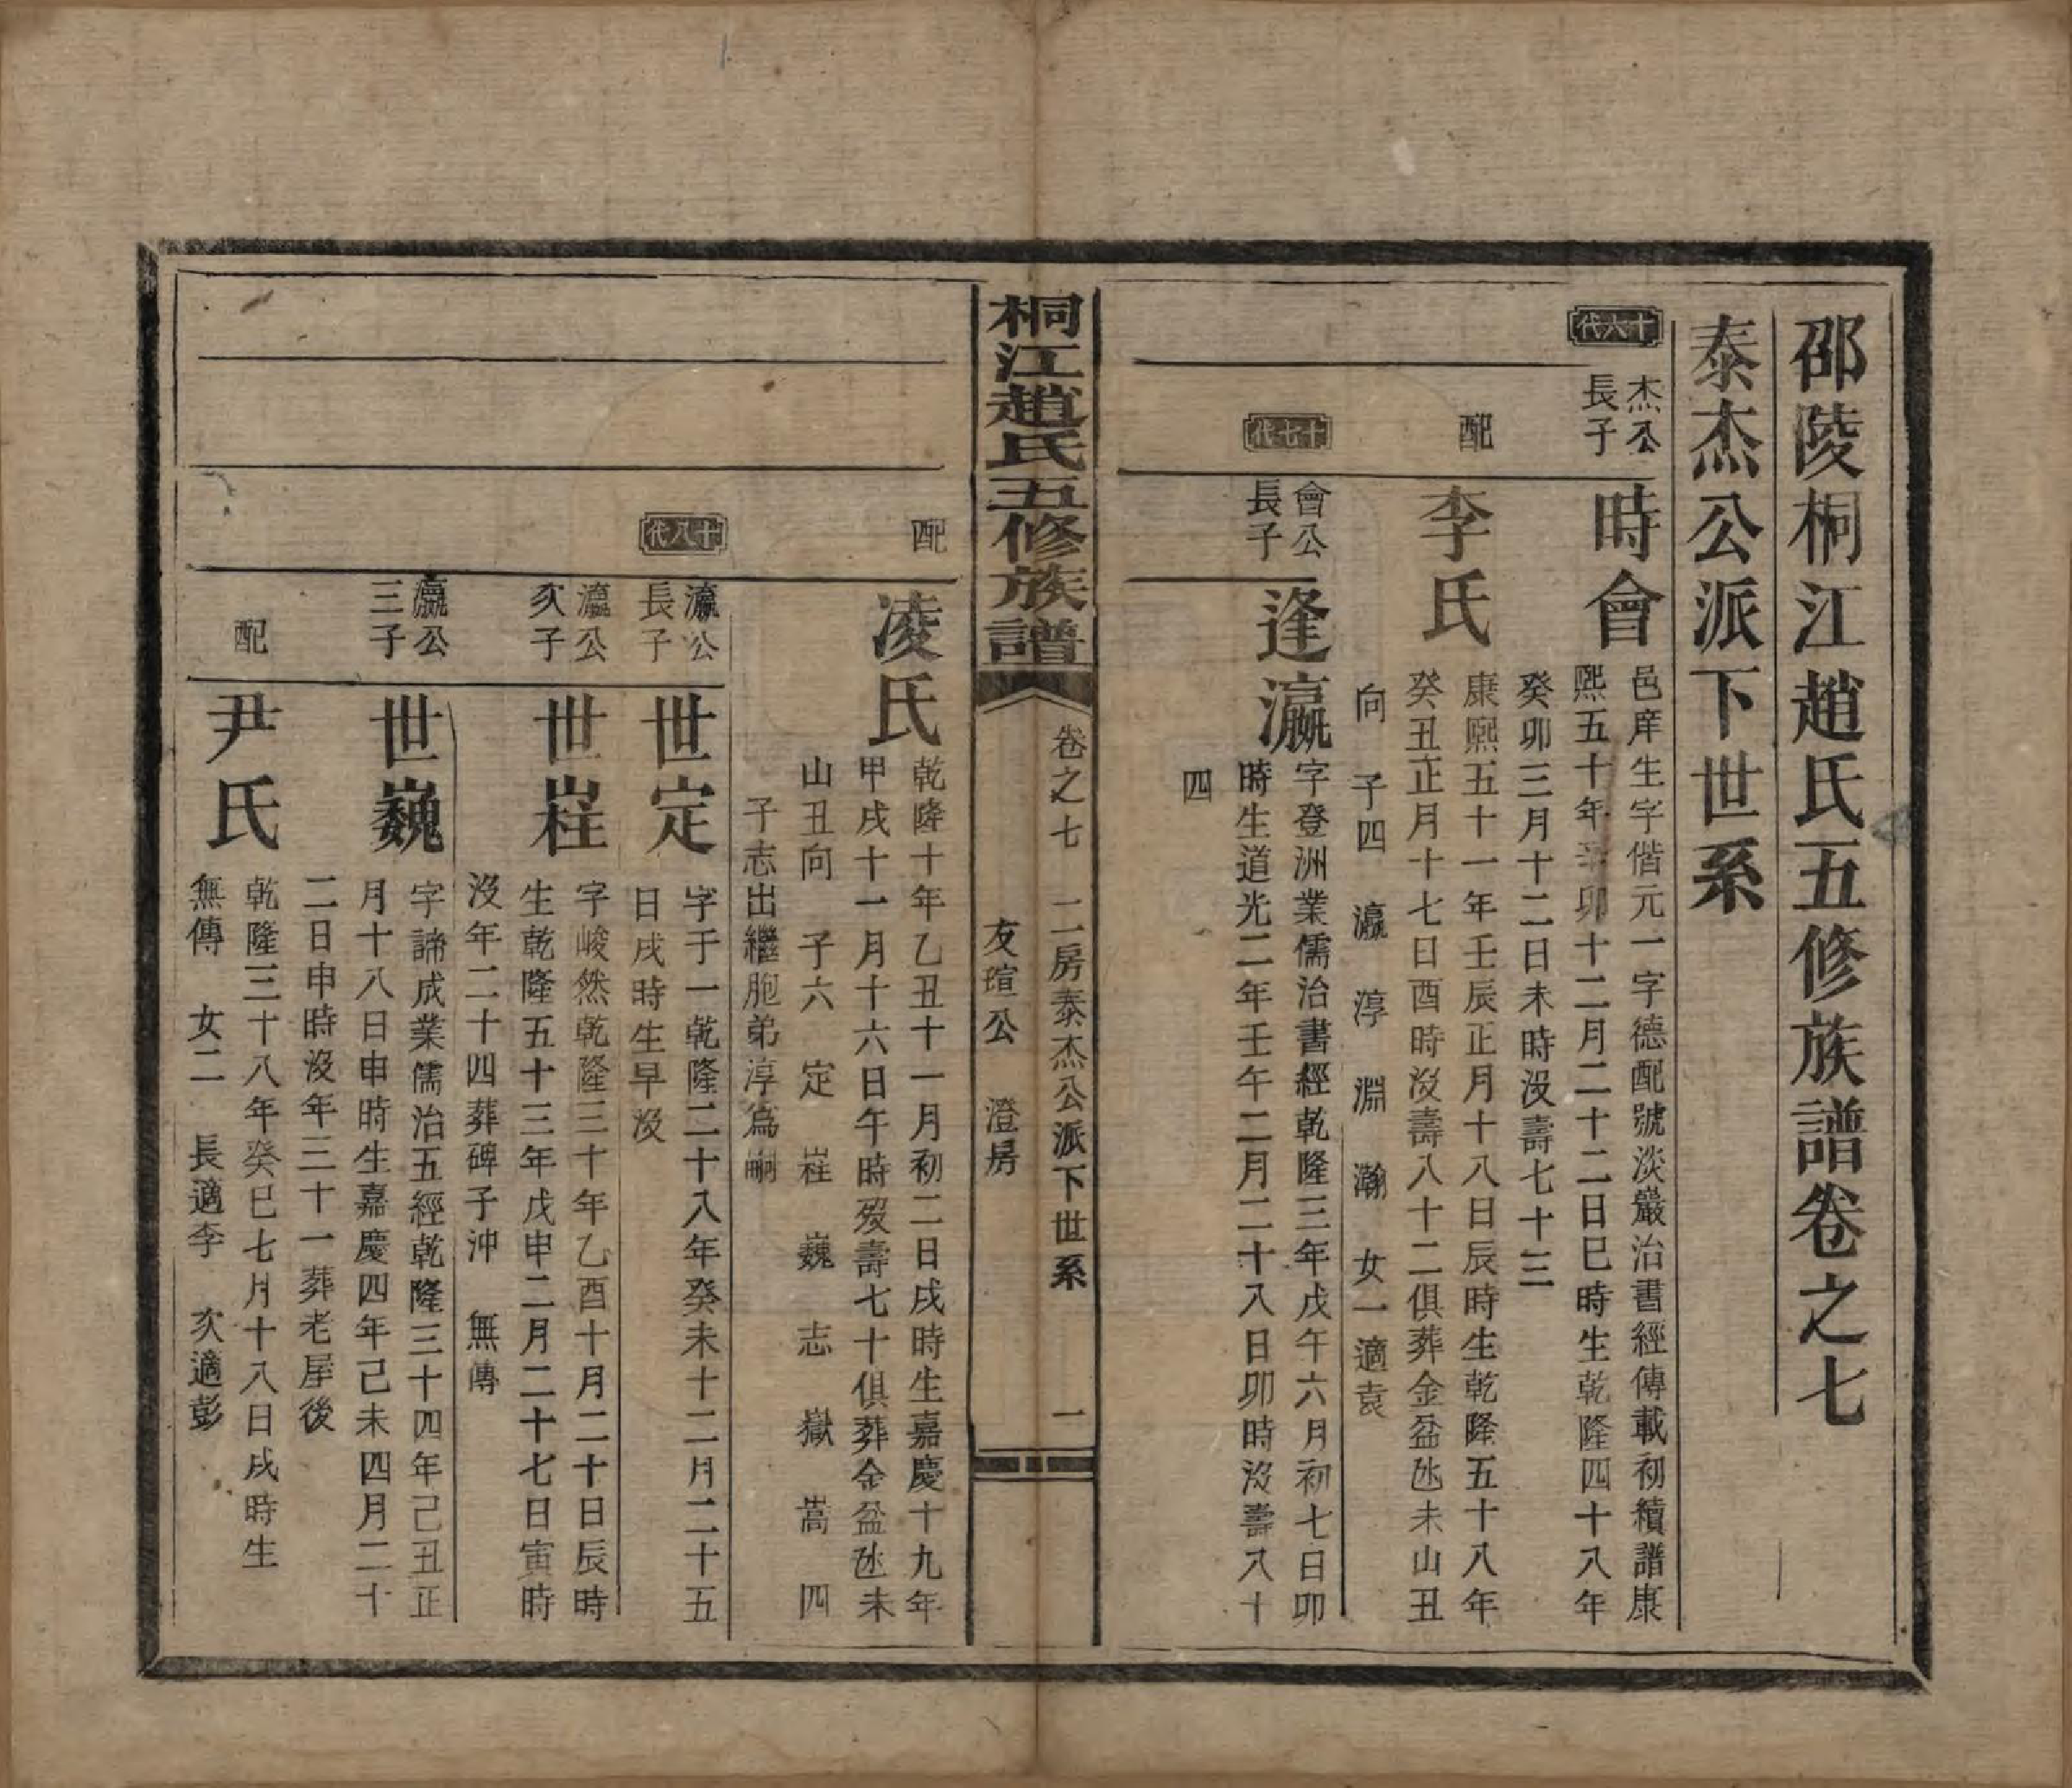 邵陵桐江趙氏五修族譜卷之七
泰杰公派下世系
十六代
杰公
長子
時會
邑庠生字偕元一字德配號淡巖治書經傳載初續譜康
熙五十年辛卯十二月二十二日巳時生乾隆四十八年
癸卯三月十二日未時沒壽七十三
配
李氏
康熙五十一年壬辰正月十八日辰時生乾隆五十八年
癸丑正月十七日酉時沒壽八十二俱葬金盆氹未山丑
向 子四 瀛 淳 淵 瀚 女一適袁
十七代
會公
長子
逢瀛
字登洲業儒治書經乾隆三年戊午六月初七日卯
時生道光二年壬午二月二十八日卯時沒壽八十
四
桐江趙氏五修族譜
卷之七 二房泰杰公派下世系 一
友瑄公 澄房
配
凌氏
乾隆十年乙丑十一月初二日戌時生嘉慶十九年
甲戌十一月十六日午時歿壽七十俱葬金盆氹未
山丑向 子六 定 嵀 巍 志 嶽 嵩 四
子志出繼胞弟淳爲嗣
十八代
瀛公
長子
世定
字于一乾隆二十八年癸未十二月二十五
日戌時生早沒
瀛公
次子
世嵀
字峻然乾隆三十年乙酉十月二十日辰時
生乾隆五十三年戊申二月二十七日寅時
沒年二十四葬碑子沖 無傳
瀛公
三子
世巍
字諦成業儒治五經乾隆三十四年己丑正
月十八日申時生嘉慶四年己未四月二十
二日申時沒年三十一葬老屋後
配
尹氏
乾隆三十八年癸巳七月十八日戌時生
無傳 女二 長適李 次適彭